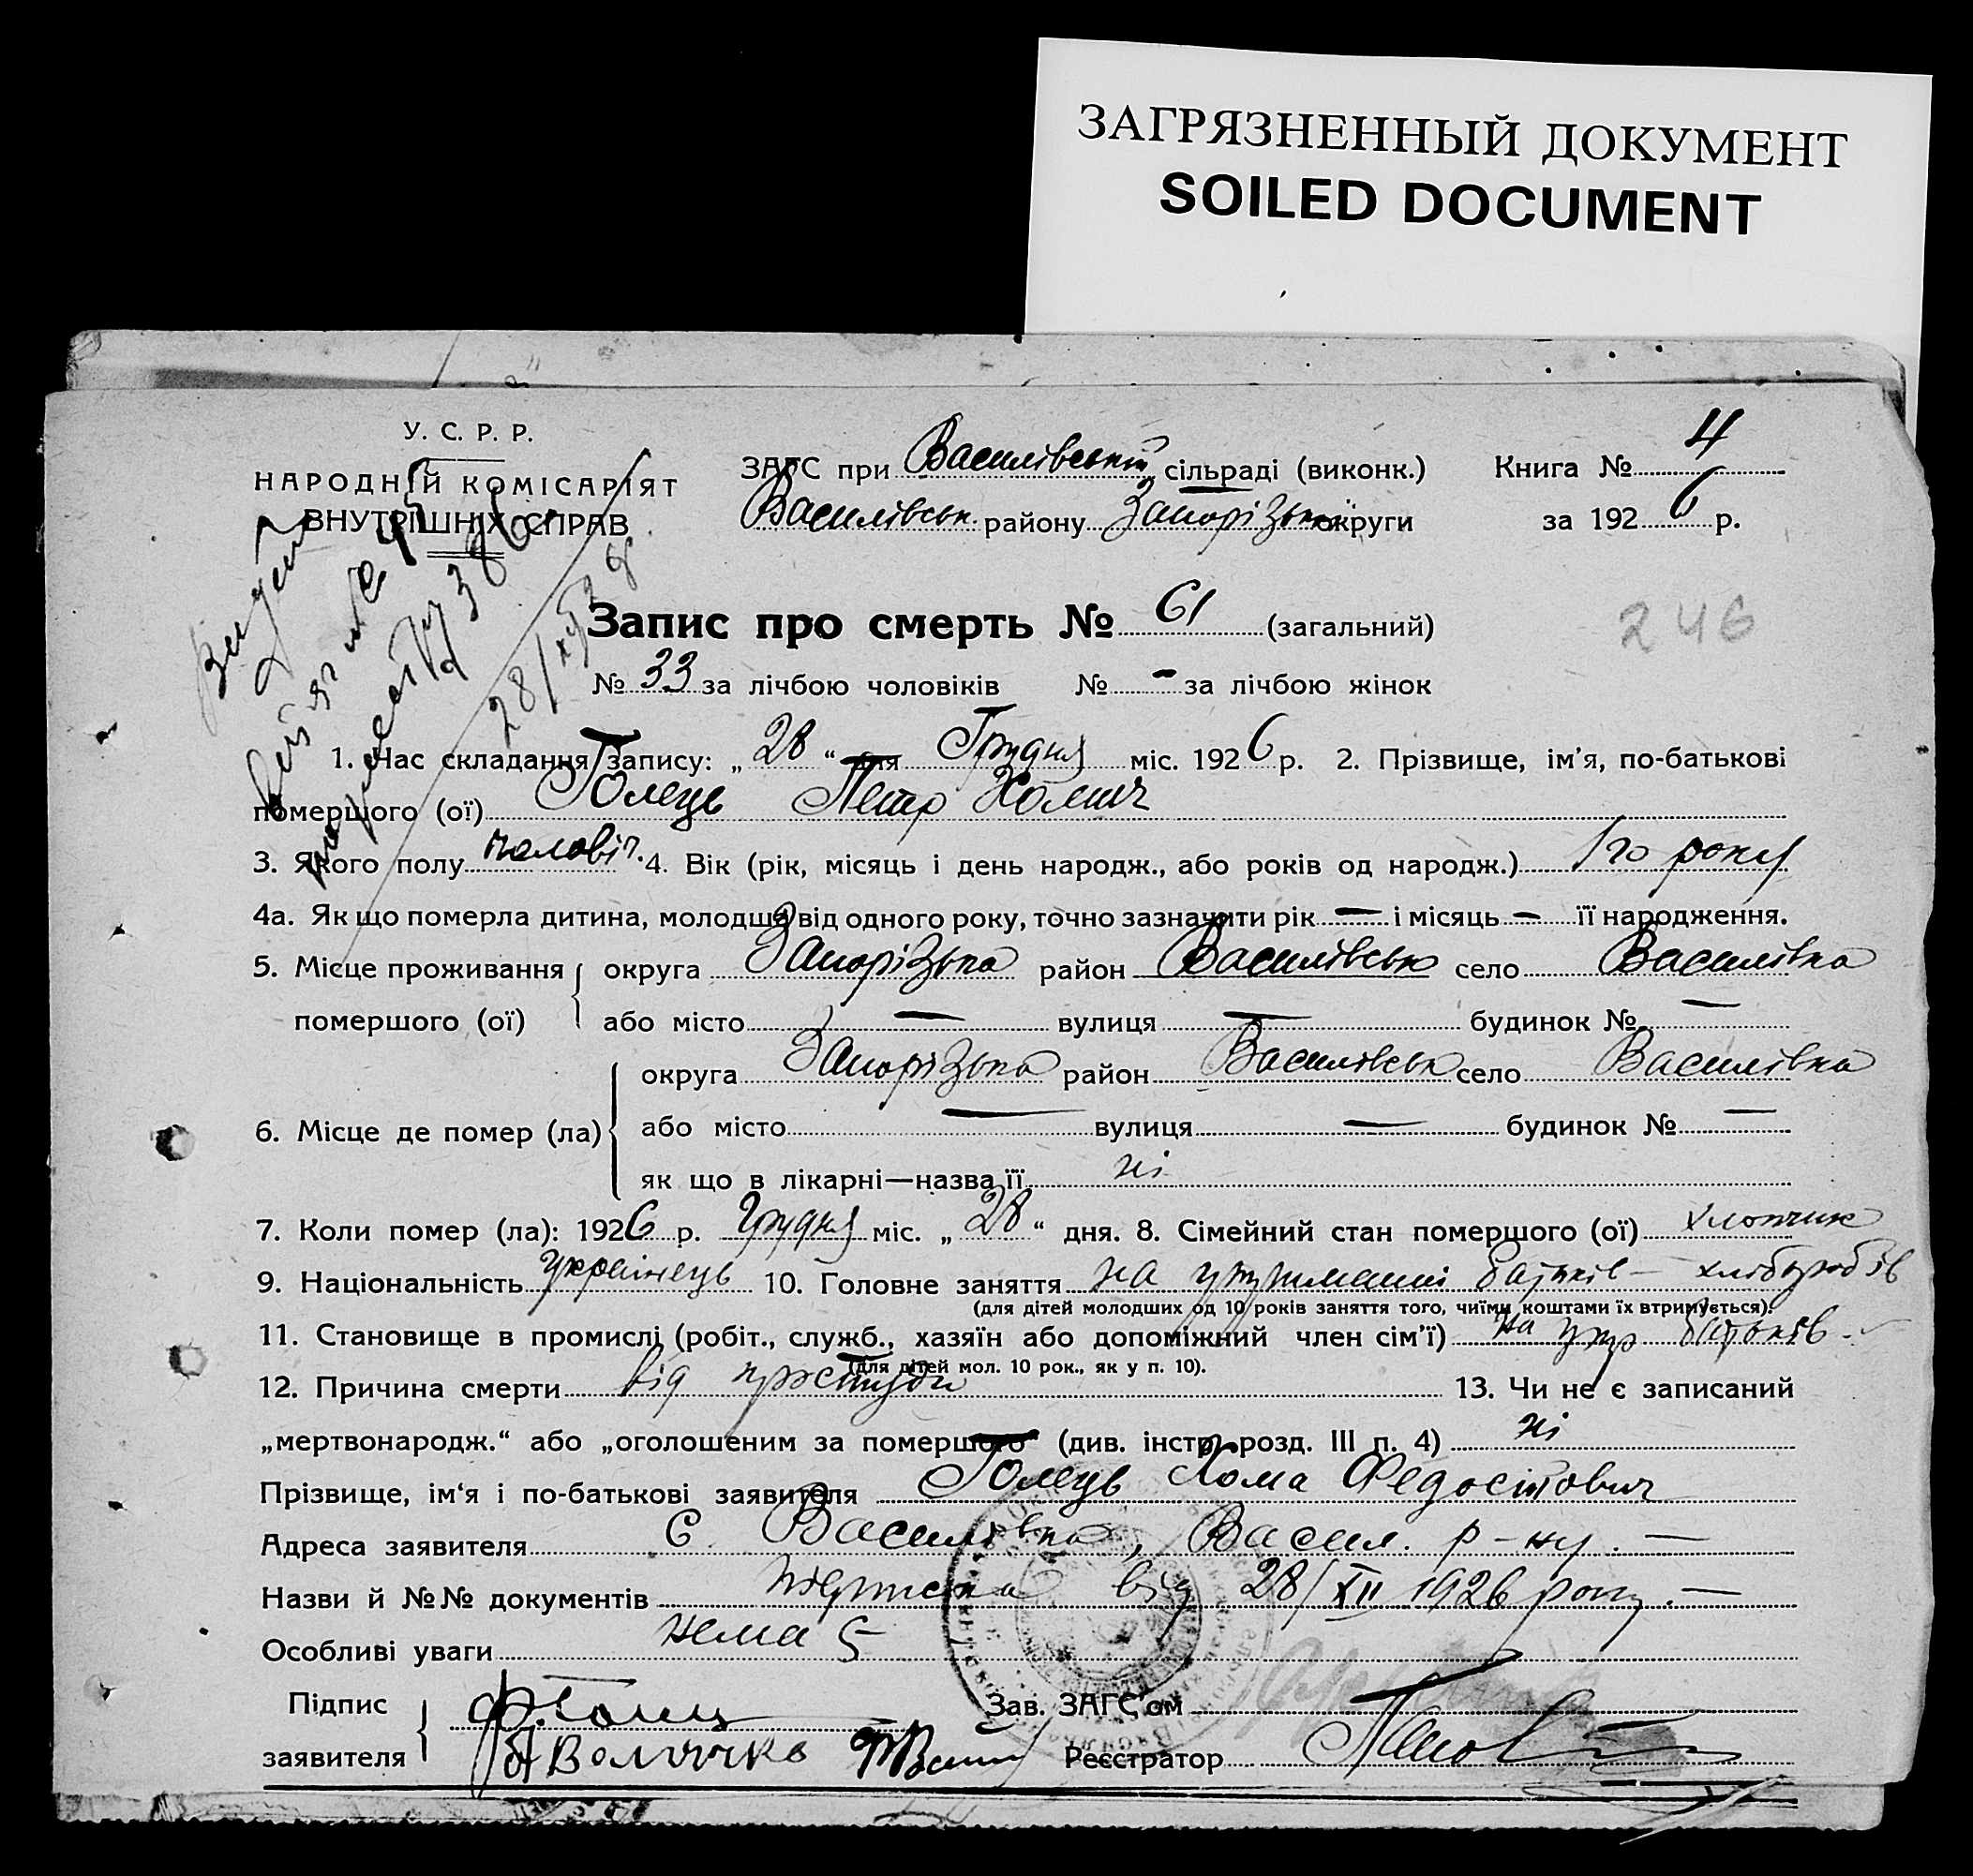 ЗАГРЯЗНЕННЫЙ ДОКУМЕНТ
SOILED DOCUMENT
У. С. Р. Р.
НАРОДНІЙ КОМІСАРІЯТ
ВНУТРІШНІХ СПРАВ
ЗАГС при Василівській сільраді (виконк.) Книга № 4
Василівськ. району Запорізької округи за 1926 р.
Запис про смерть № 61 (загальний)
246
№ 33 за лічбою чоловіків № - за лічбою жінок
28/XII 38
1. Час складання запису: „28“ дня Грудня міс. 1926 р. 2. Прізвище, ім'я, по-батькові
помершого (ої) Голець Петр Хомич
3. Якого полу чоловіч. 4. Вік (рік, місяць і день народж., або років од народж.) 1го року
4а. Як що померла дитина, молодша від одного року, точно зазначити рік — і місяць — її народження.
5. Місце проживання округа Запорізька район Василівськ село Василівка
помершого (ої) або місто — вулиця — будинок № —
округа Запорізька район Василівськ село Василівка
6. Місце де помер (ла) або місто — вулиця — будинок № —
як що в лікарні—назва її ні
7. Коли помер (ла): 1926 р. Грудня міс. „28“ дня. 8. Сімейний стан помершого (ої) хлопчик
9. Національність Українець 10. Головне заняття на утриманні батьків - хліборобів
(для дітей молодших од 10 років заняття того, чиїми коштами їх втримується).
11. Становище в промислі (робіт., служб., хазяїн або допоміжний член сім'ї) на утр батьків -
(для дітей мол. 10 рок., як у п. 10).
12. Причина смерти від простуди 13. Чи не є записаний
„мертвонародж.“ або „оголошеним за помершого“ (див. інстр. розд. III п. 4) ні
Прізвище, ім'я і по-батькові заявителя Голець Хома Федостович
Адреса заявителя с. Василівка, Васил. р-ну. —
Назви й №№ документів від 28/XII 1926 року. —
Особливі уваги нема
Підпис Зав. ЗАГС'ом
заявителя Реєстратор